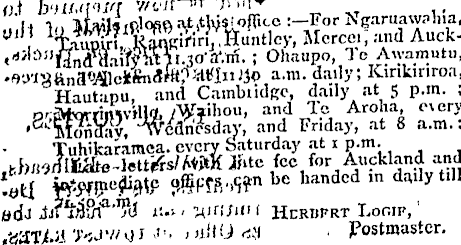 Mails close at this office :—For Ngaruawahia,
Taupiri, Rangiriri, Huntley, Mercer, and Auck-
land daily at 11.30 a.m. ; Ohaupo, Te Awamutu,
and Alexandra, at 11.30 a.m. daily; Kirikiriroa,
Hautapu, and Cambridge, daily at 5 p.m. ;
Morrinsville, Waihou, and Te Aroha, every
Monday, Wednesday, and Friday, at 8 a.m. :
Tuhikaramea, every Saturday at 1 p.m.
Late letters with late fee for Auckland and
intermediate offices can be handed in daily till
11.50 a.m.
HERBERT LOGIE,
Postmaster.